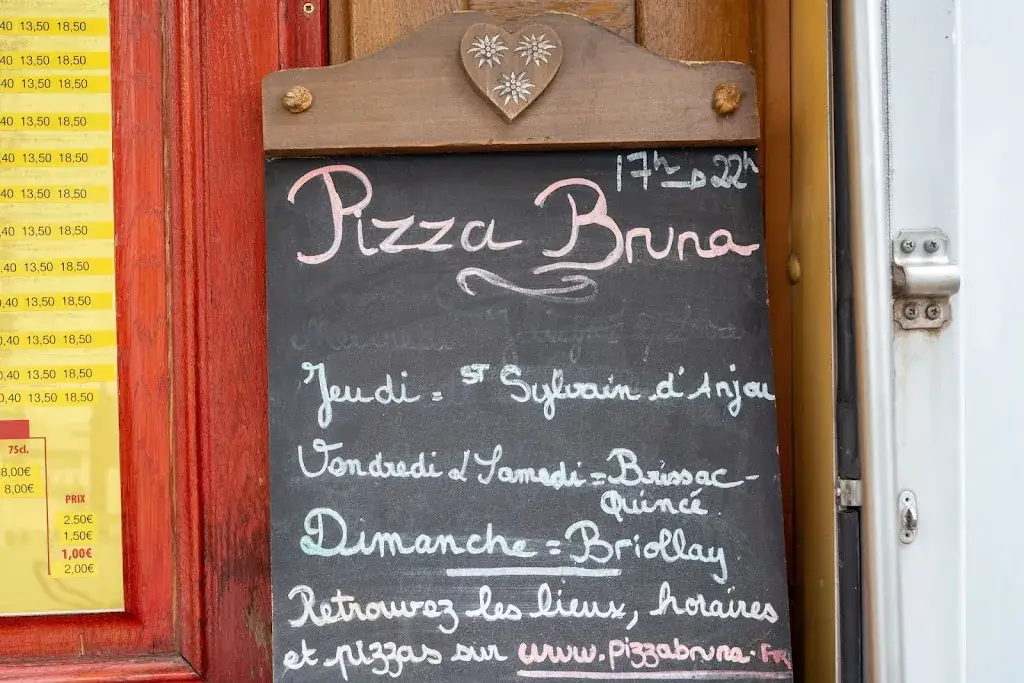 40 13,50 18,50
40 13,50 18,50
40 13,50 18,50
,40 13,50 18,50
,40 13,50 18,50
,40 13,50 18,50
,40 13,50 18,50
,40 13,50 18,50
0,40 13,50 18,50
0,40 13,50 18,50
0,40 13,50 18,50
0,40 13,50 18,50
75cl.
8,00€
8,00€
PRIX
2.50€
1,50€
1,00€
2,00€
17h → 22h
Pizza Bruna
Jeudi = ST Sylvain d'Anjou
Vendredi & Samedi = Brissac-
Quincé
Dimanche = Briollay
Retrouvez les lieux, horaires
et pizzas sur www.pizzabruna.Fr